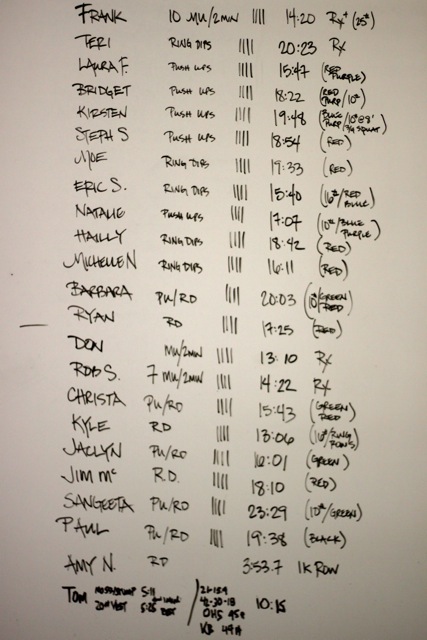 FRANK 10 MU/2MIN |||| 14:20 RX+ (25#)
TERI RING DIPS |||| 20:23 RX
LAURA F. PUSH UPS |||| 15:47 (RED PURPLE)
BRIDGET PUSH UPS |||| 18:22 (RED PURP/10#)
KIRSTEN PUSH UPS |||| 19:48 (BLUE PURP/ SQUAT)
STEPH S PUSH UPS |||| 18:54 (RED)
MOE RING DIPS |||| 19:33 (RED)
ERIC S. RING DIPS |||| 15:40 (16#/RED BLUE)
NATALIE PUSH UPS |||| 17:07 (10#/BLUE PURPLE)
HAILLY RING DIPS |||| 18:42 (RED)
MICHELLE N RING DIPS |||| 16:11 (RED)
BARBARA PU/RD |||| 20:03 (10#/GREEN RED)
RYAN RD |||| 17:25 (RED)
DON MU/2MIN |||| 13:10 RX
ROB S. 7 MU/2MIN |||| 14:22 RX
CHRISTA PU/RD |||| 15:43 (GREEN RED)
KYLE RD |||| 13:06 (16#/RING ROWS)
JACLYN PU/RD |||| 16:01 (GREEN)
JIM Mc R.D. |||| 18:10 (RED)
SANGEETA PU/RD |||| 23:29 (10#/GREEN)
PAUL PU/RD |||| 19:38 (BLACK)
AMY N. RD 3:53.7 1K ROW
TOM 5:11 / 21-15-9
20# VEST 5:25 42-30-18 10:15
OHS 45#
KB 49#